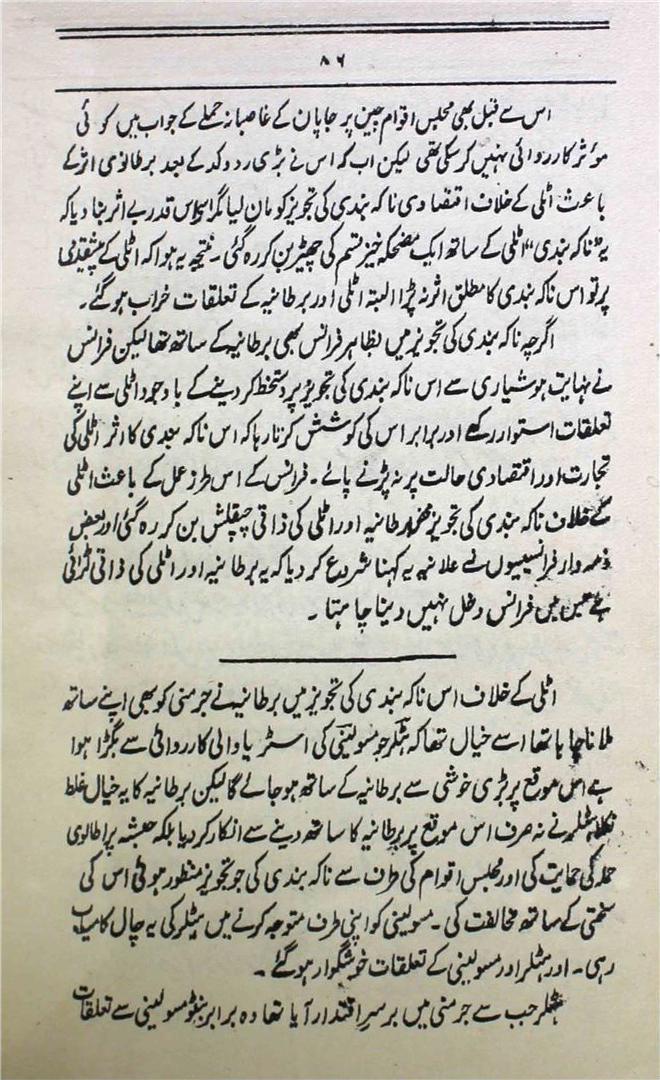 ۸۶
اس سے قبل بھی مجلس اقوام چین پر جاپان کے غاصبانہ حملے کے جواب میں کوئی
مؤثر کارروائی نہیں کر سکی تھی لیکن اب کہ اس نے بڑی ردوکد کے بعد برطانوی اثر کے
باعث اٹلی کے خلاف اقتصادی ناکہ بندی کی تجویز کو مان لیا مگر اسے اس قدر بے اثر بنا دیا کہ
یہ "ناکہ بندی" اٹلی کے ساتھ ایک مضحکہ خیز قسم کی چھیڑ بن کر رہ گئی۔ نتیجہ یہ ہوا کہ اٹلی کے
پر تو اس ناکہ بندی کا مطلق اثر نہ پڑا البتہ اٹلی اور برطانیہ کے تعلقات خراب ہو گئے۔
اگرچہ ناکہ بندی کی تجویز میں بظاہر فرانس بھی برطانیہ کے ساتھ تھا لیکن فرانس
نے نہایت ہوشیاری سے اس ناکہ بندی کی تجویز پر دستخط کر دینے کے باوجود اٹلی سے اپنے
تعلقات استوار رکھے اور برابر اس کی کوشش کرتا رہا کہ اس ناکہ بندی کا اثر اٹلی کی
تجارت اور اقتصادی حالت پر نہ پڑنے پائے۔ فرانس کے اس طرز عمل کے باعث اٹلی
کے خلاف ناکہ بندی کی تجویز برطانیہ اور اٹلی کی ذاتی چپقلش بن کر رہ گئی اور بعض
ذمہ دار فرانسیسیوں نے علانیہ یہ کہنا شروع کر دیا کہ یہ برطانیہ اور اٹلی کی ذاتی لڑائی
ہے جس میں فرانس دخل نہیں دینا چاہتا۔
اٹلی کے خلاف اس ناکہ بندی کی تجویز میں برطانیہ نے جرمنی کو بھی اپنے ساتھ
ملانا چاہا تھا اسے خیال تھا کہ ہٹلر جو مسولینی کی اسٹریا والی کارروائی سے بگڑا ہوا
ہے اس موقع پر بڑی خوشی سے برطانیہ کے ساتھ ہو جائے گا لیکن برطانیہ کا یہ خیال غلط
نکلا ہٹلر نے نہ صرف اس موقع پر برطانیہ کا ساتھ دینے سے انکار کر دیا بلکہ حبشہ پر اطالوی
حملہ کی حمایت کی اور مجلس اقوام کی طرف سے ناکہ بندی کی جو تجویز منظور ہوئی اس کی
سختی کے ساتھ مخالفت کی۔ مسولینی کو اپنی طرف متوجہ کرنے میں ہٹلر کی یہ چال کامیاب
رہی۔ اور ہٹلر اور مسولینی کے تعلقات خوشگوار ہو گئے۔
ہٹلر جب سے جرمنی میں برسر اقتدار آیا تھا وہ برابر بنٹو مسولینی سے تعلقات